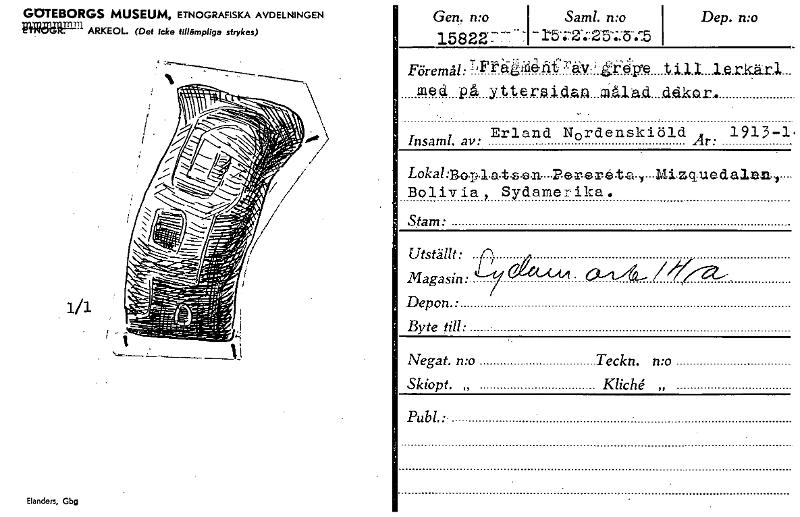 GÖTEBORGS MUSEUM, ETNOGRAFISKA AVDELNINGEN
ETNOGR. ARKEOL. (Det icke tillämpliga strykes)
1/1
Elanders, Gbg
Gen. n:o Saml. n:o Dep. n:o
15822 15.2.25.8.5
Föremål: Fragment av grepe till lerkärl
med på yttersidan målad dekor.
Insaml. av: Erland Nordenskiöld År: 1913-1
Lokal: Boplatsen Perereta, Mizquedalen,
Bolivia, Sydamerika.
Stam:
Utställt:
Magasin: Sydam ark 14/a
Depon.:
Byte till:
Negat. n:o Teckn. n:o
Skiopt. „ Kliché „
Publ.: